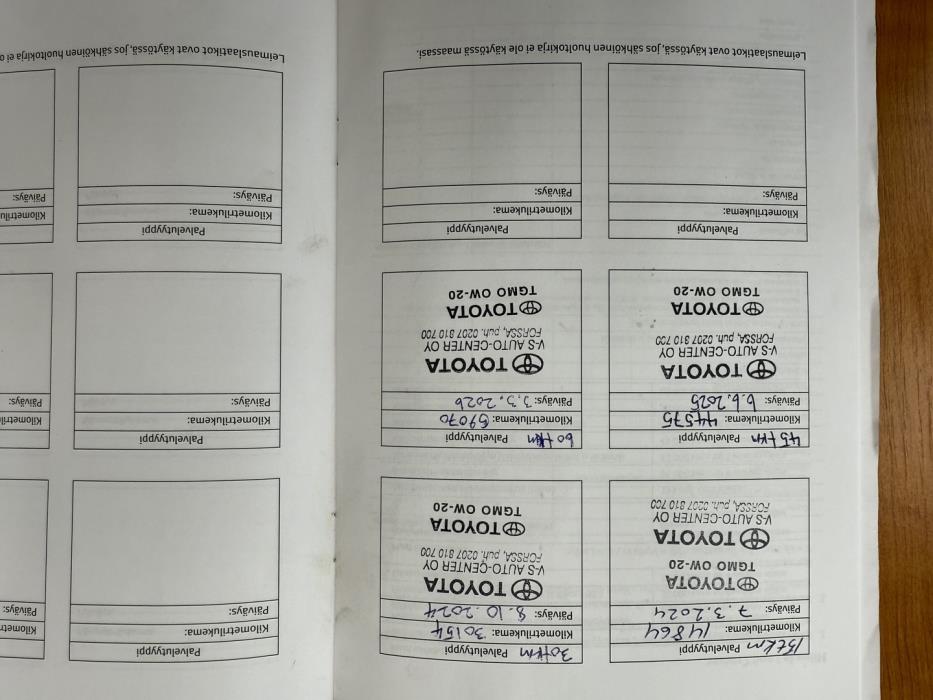 15tkm Palvelutyyppi
Kilometrilukema: 14864
Päiväys: 7.3.2024
TOYOTA
TGMO OW-20
TOYOTA
V-S AUTO-CENTER OY
FORSSA, puh. 0207 810 700
30tkm Palvelutyyppi
Kilometrilukema: 30154
Päiväys: 8.10.2024
TOYOTA
V-S AUTO-CENTER OY
FORSSA, puh. 0207 810 700
TOYOTA
TGMO OW-20
45tkm Palvelutyyppi
Kilometrilukema: 44575
Päiväys: 6.6.2025
TOYOTA
V-S AUTO-CENTER OY
FORSSA, puh. 0207 810 700
TOYOTA
TGMO OW-20
60tkm Palvelutyyppi
Kilometrilukema: 59070
Päiväys: 3.3.2026
TOYOTA
V-S AUTO-CENTER OY
FORSSA, puh. 0207 810 700
TOYOTA
TGMO OW-20
Palvelutyyppi
Kilometrilukema:
Päiväys:
Palvelutyyppi
Kilometrilukema:
Päiväys:
Leimauslaatikot ovat käytössä, jos sähköinen huoltokirja ei ole käytössä maassasi.
Palvelutyyppi
Kilometrilukema:
Päiväys:
Kilomet
Päiväys:
Palvelutyyppi
Kilometrilukema:
Päiväys:
Kilometri
Päiväys:
Palvelutyyppi
Kilometrilukema:
Päiväys:
Kilometrilu
Päiväys:
Leimauslaatikot ovat käytössä, jos sähköinen huoltokirja ei o